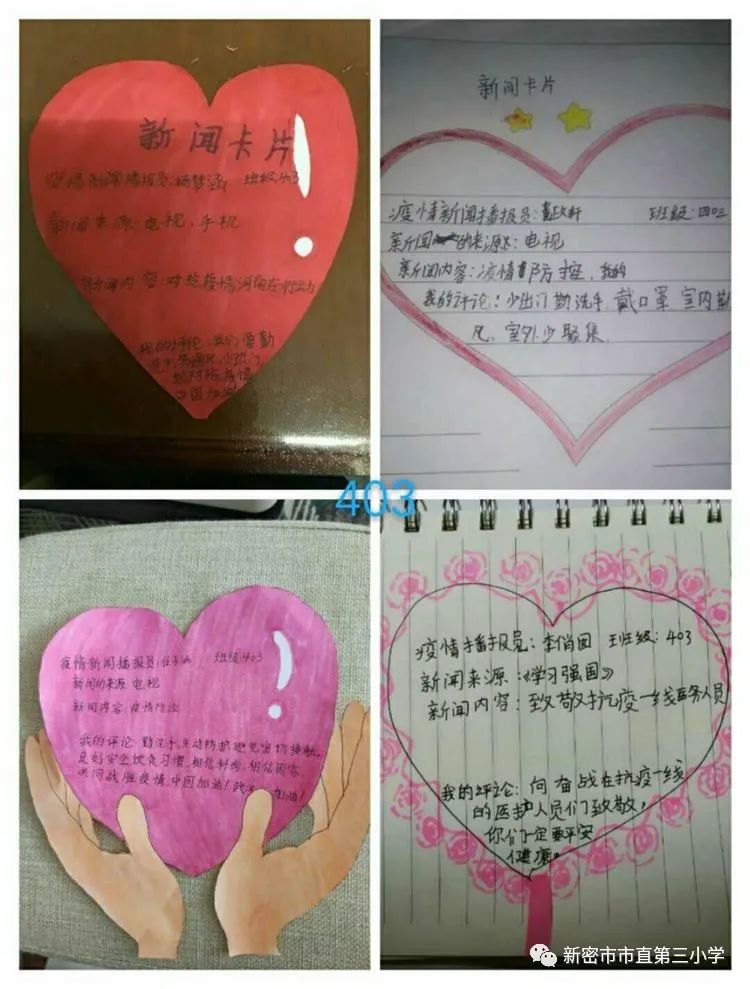 新闻卡片
疫情新闻播报员:杨梦涵 班级:403
新闻来源:电视,手机
新闻内容:对抗疫情河南在行动
我的评论:我们要勤
洗手,多通风,少出门,
中国加油
新闻卡片
疫情新闻播报员: 班级:四〇三
新闻的来源:电视
新闻内容:疫情防控,我的
我的评论:少出门勤洗手,戴口罩 室内勤
风、室外少聚集
403
疫情新闻播报员: 班级403
新闻的来源 电视
新闻内容:疫情防控
我的评论:勤洗手,主动防护,避免密切接触,
良好安全饮食习惯,相信科学,相信国家
共同战胜疫情,中国加油!武 加油!
疫情播报员:李俏园 班级:403
新闻来源:《学习强国》
新闻内容:致敬抗疫一线医务人员
我的评论:向奋战在抗疫一线
的医护人员们致敬,
你们一定要平安
健康。
新密市市直第三小学